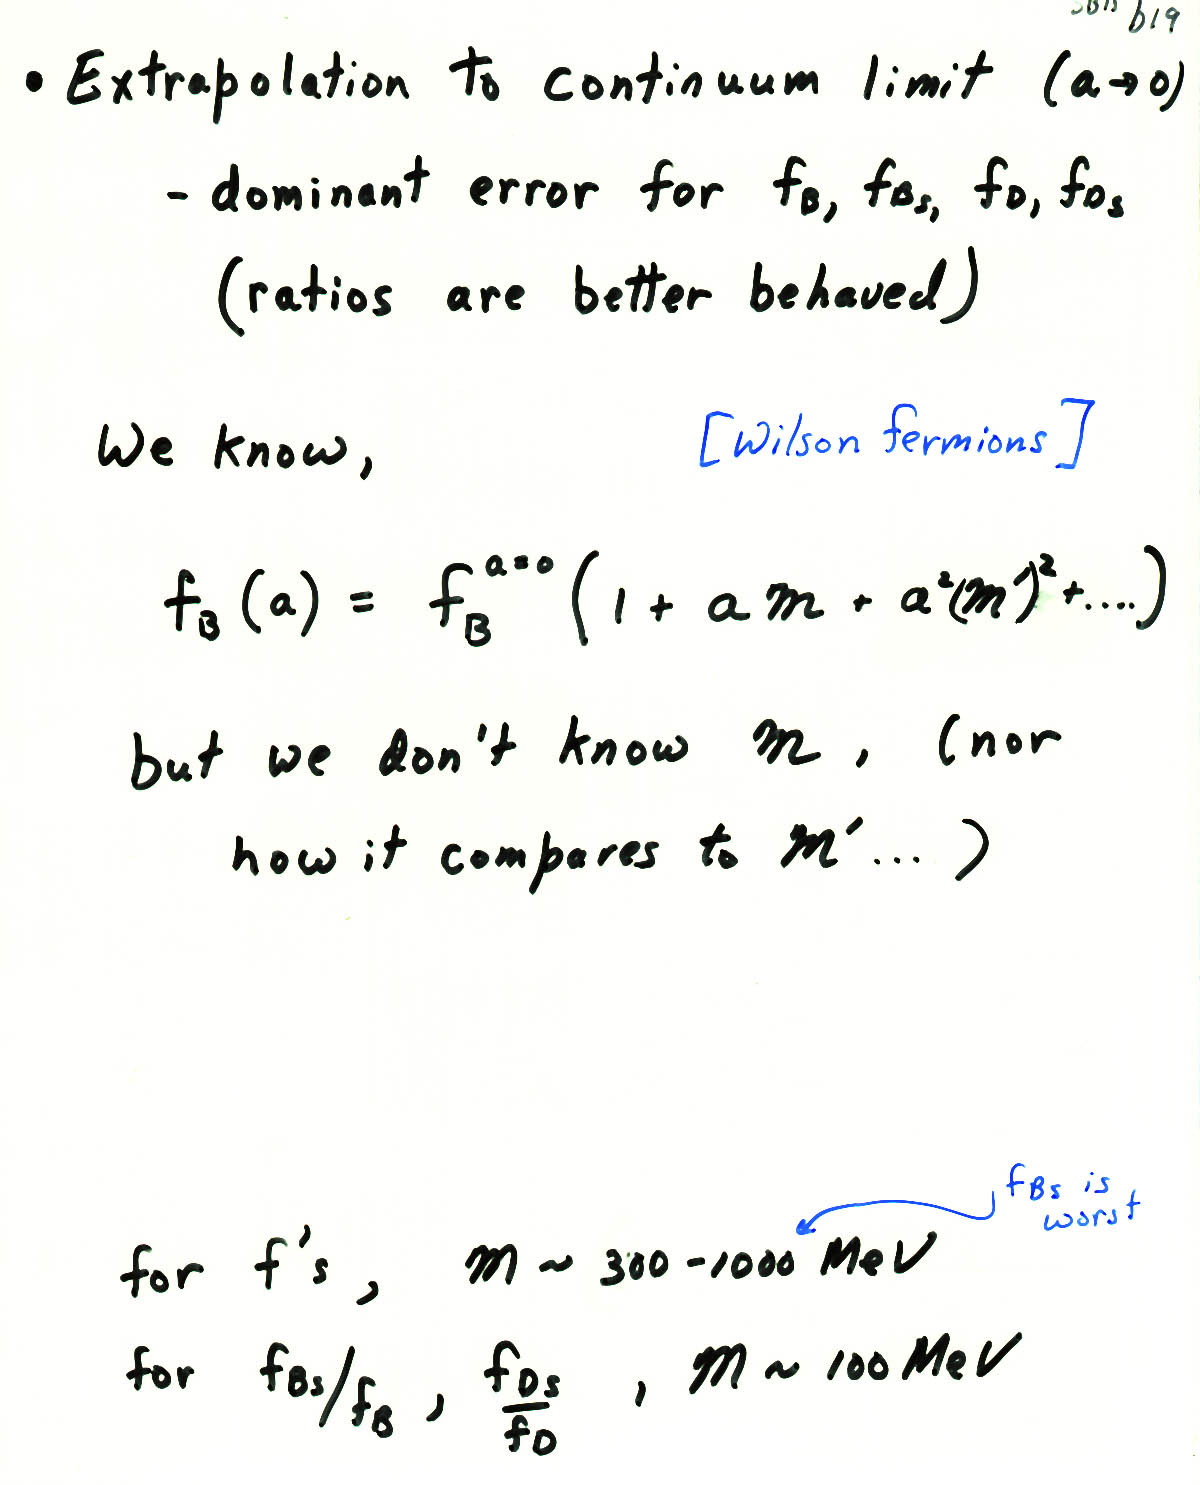 b19
• Extrapolation to continuum limit (a→0)
- dominant error for f_B, f_Bs, f_D, f_Ds
(ratios are better behaved)
We know, [Wilson fermions]
f_B(a) = f_B^{a=0} (1 + a m + a²(m')² + ....)
but we don't know m, (nor
how it compares to m' ... )
f_Bs is
worst
for f's, m ~ 300-1000 MeV
for f_Bs/f_B, f_Ds/f_D, m ~ 100 MeV